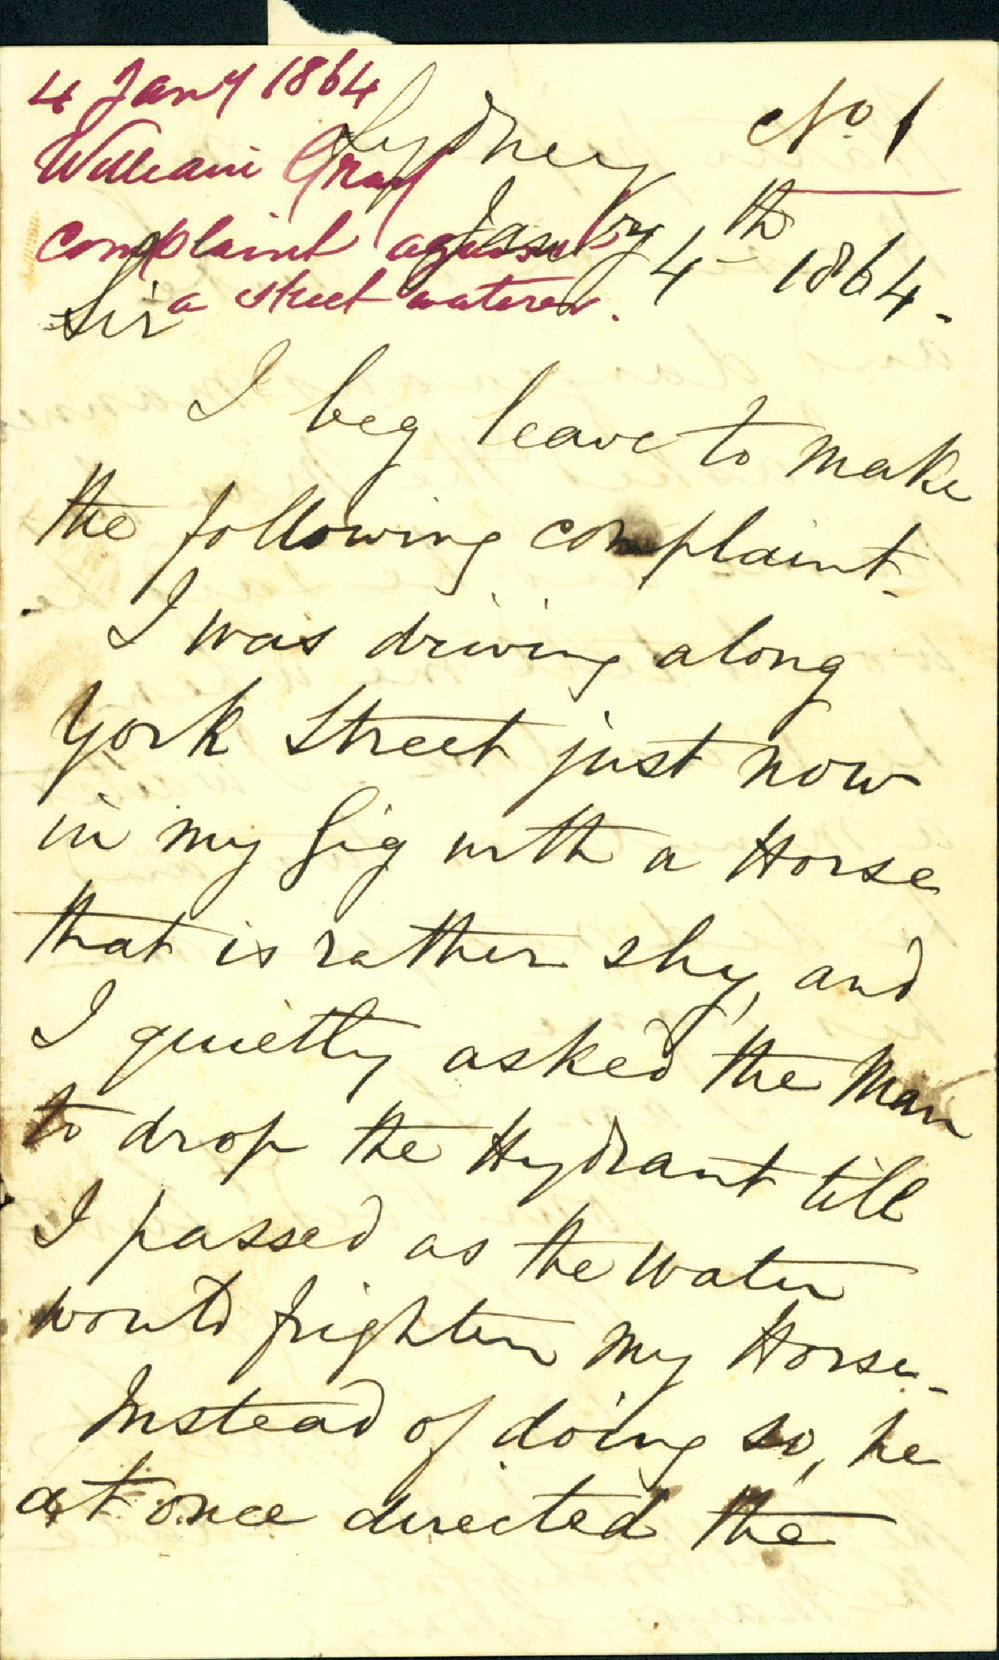 4 Jany 1864
William Gray
complaint against
a street waterer.
No 1
Sydney
Jan'ry 4th 1864-
Sir
I beg leave to make
the following complaint-
I was driving along
York Street just now
in my Gig with a Horse
that is rather shy, and
I quietly asked the Man
to drop the Hydrant till
I passed as the water
would frighten my Horse-
Instead of doing so, he
at once directed the